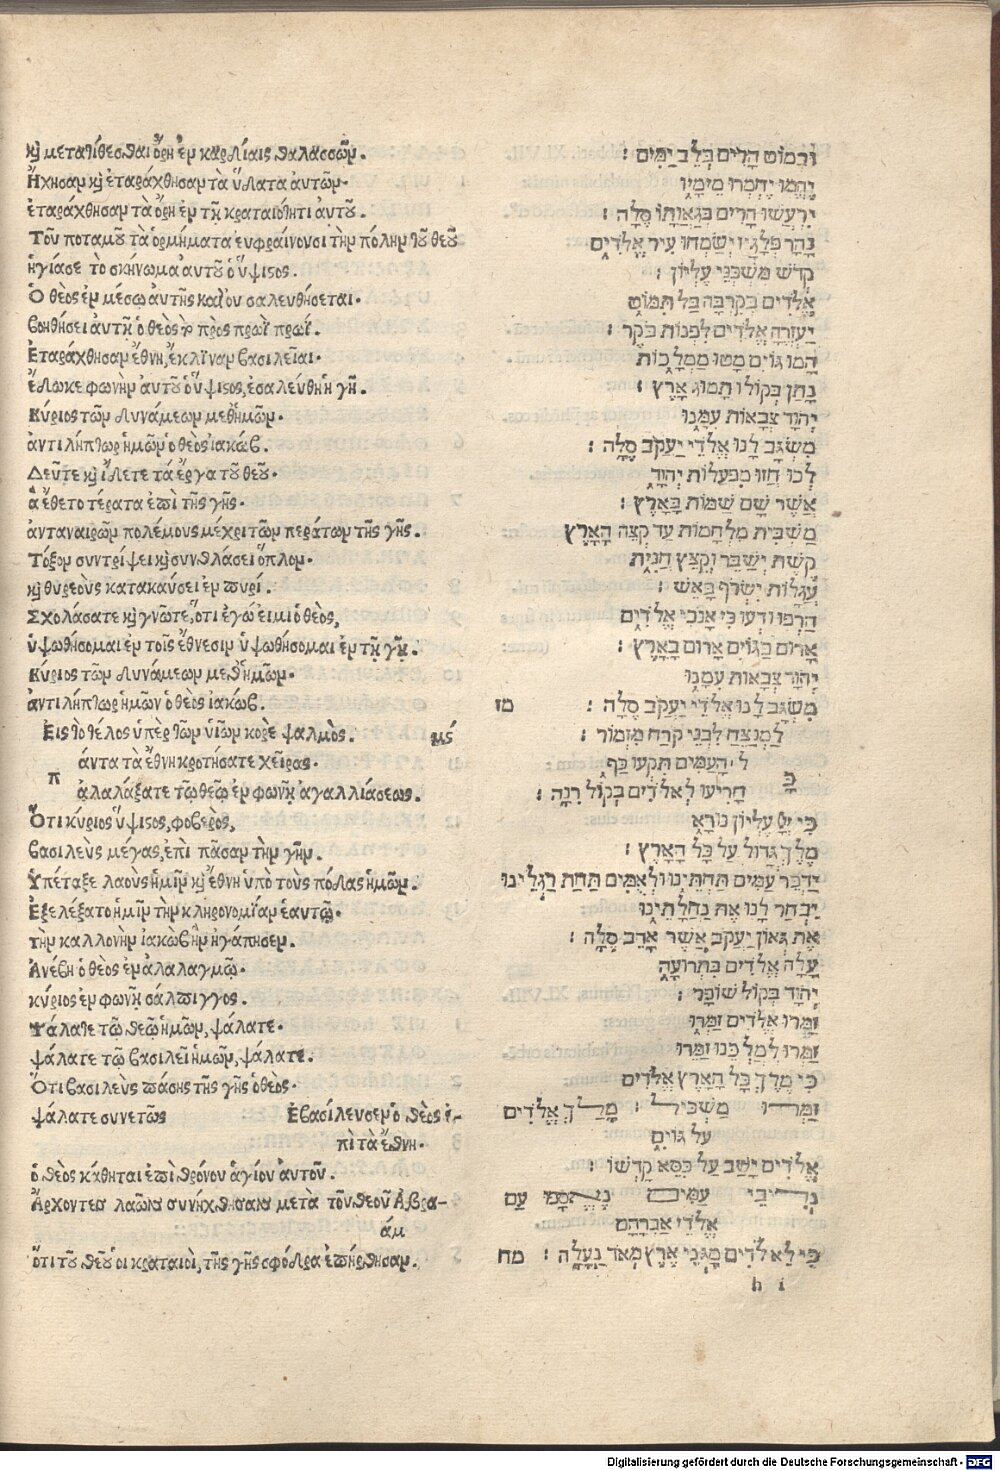 καὶ μετατίθεσθαι ὄρη ἐν καρδίαις θαλασσῶν.
Ἤχησαν καὶ ἐταράχθησαν τὰ ὕδατα ἀυτῶν·
ἐταράχθησαν τὰ ὄρη ἐν τῇ κραταιότητι ἀυτοῦ.
Τοῦ ποταμοῦ τὰ ὁρμήματα ευφραίνουσι τὴν πόλην τοῦ θεοῦ
ἡγίασε τὸ σκήνωμα ἀυτοῦ ὁ ὕψισος.
Ὁ θεὸς ἐν μέσω ἀυτῆς καὶ ὀυ σαλευθήσεται·
βοηθήσει ἀυτῇ ὁ θεὸς τὸ πρὸς πρωῒ πρωΐ.
Ἐταράχθησαν ἔθνη, ἔκλιναν βασιλεῖαι·
ἔδωκε φωνὴν ἀυτοῦ ὁ ὕψισος, ἐσαλεύθη ἡ γῆ.
Κύριος τῶν δυνάμεων μεθἡμῶν·
ἀντιλήπτωρ ἡμῶν ὁ θεὸς ἰακώβ.
Δεῦτε καὶ ἴδετε τὰ ἔργα τοῦ θεοῦ·
ἃ ἔθετο τέρατα ἐπὶ τῆς γῆς·
ἀνταναιρῶν πολέμους μέχρι τῶν περάτων τῆς γῆς.
Τόξον συντρίψει καὶ συνθλάσει ὅπλον·
καὶ θυρεοὺς κατακαύσει ἐν πυρί.
Σχολάσατε καὶ γνῶτε, ὅτι ἐγώ ἐιμι ὁ θεὸς,
ὑψωθήσομαι ἐν τοῖς ἔθνεσιν ὑψωθήσομαι ἐν τῇ γῇ.
Κύριος τῶν δυνάμεων μεθἡμῶν·
ἀντιλήπτωρ ἡμῶν ὁ θεὸς ἰακώβ.
Ἐις τὸ τέλος ὑπὲρ τῶν ὑιῶν κορὲ ψαλμὸς. μς
άντα τὰ ἔθνη κροτήσατε χεῖρας·
π
ἀλαλάξατε τῷ θεῷ ἐν φωνῇ ἀγαλλιάσεως.
Ὅτι κύριος ὕψισος, φοβερὸς,
βασιλεὺς μέγας, ἐπὶ πᾶσαν τὴν γῆν.
Ὑπέταξε λαοὺς ἡμῖν καὶ ἔθνη ὑπὸ τοὺς πόδας ἡμῶν.
Ἐξελέξατο ἡμῖν τὴν κληρονομίαν ἑαυτῷ·
τὴν καλλονὴν ἰακὼβ ἣν ἠγάπησεν.
Ἀνέβη ὁ θεὸς ἐν ἀλαλαγμῷ·
κύριος ἐν φωνῇ σάλπιγγος.
Ψάλατε τῷ θεῷ ἡμῶν, ψάλατε·
ψάλατε τῷ βασιλεῖ ἡμῶν, ψάλατε.
Ὅτι βασιλεὺς πάσης τῆς γῆς ὁ θεὸς·
ψάλατε συνετῶς Ἐβασίλευσεν ὁ θεὸς ἐ-
πὶ τὰ ἔθνη·
ὁ θεὸς κάθηται ἐπὶ θρόνου ἁγίου ἀυτοῦ.
Ἄρχοντες λαῶν συνήχθησαν μετὰ τοῦ θεοῦ Ἀβρα-
άμ
ὅτι τοῦ θεοῦ οἱ κραταιοὶ, τῆς γῆς σφόδρα ἐπήρθησαν.
וּבְמוֹט הָרִים בְּלֵב יַמִּים :
יֶהֱמוּ יֶחְמְרוּ מֵימָיו
יִרְעֲשׁוּ הָרִים בְּגַאֲוָתוֹ סֶלָה :
נָהָר פְּלָגָיו יְשַׂמְּחוּ עִיר אֱלֹדִים
קְדֹשׁ מִשְׁכְּנֵי עֶלְיוֹן :
אֱלֹדִים בְּקִרְבָּהּ בַּל תִּמּוֹט
יַעְזְרֶהָ אֱלֹדִים לִפְנוֹת בֹּקֶר :
הָמוּ גוֹיִם מָטוּ מַמְלָכוֹת
נָתַן בְּקוֹלוֹ תָּמוּג אָרֶץ :
יְהוָֹד צְבָאוֹת עִמָּנוּ
מִשְׂגָּב לָנוּ אֱלֹדֵי יַעֲקֹב סֶלָה :
לְכוּ חֲזוּ מִפְעֲלוֹת יְהוָֹד
אֲשֶׁר שָׂם שַׁמּוֹת בָּאָרֶץ :
מַשְׁבִּית מִלְחָמוֹת עַד קְצֵה הָאָרֶץ
קֶשֶׁת יְשַׁבֵּר וְקִצֵּץ חֲנִית
עֲגָלוֹת יִשְׂרֹף בָּאֵשׁ :
הַרְפּוּ וּדְעוּ כִּי אָנֹכִי אֱלֹדִים
אָרוּם בַּגּוֹיִם אָרוּם בָּאָרֶץ :
יְהוָֹד צְבָאוֹת עִמָּנוּ
מִשְׂגָּב לָנוּ אֱלֹדֵי יַעֲקֹב סֶלָה : מז
לַמְנַצֵּחַ לִבְנֵי קֹרַח מִזְמוֹר :
ל־הָעַמִּים תִּקְעוּ כַף
כָּ
הָרִיעוּ לֵאלֹדִים בְּקוֹל רִנָּה :
כִּי יְיָ עֶלְיוֹן נוֹרָא
מֶלֶךְ גָּדוֹל עַל כָּל הָאָרֶץ :
יַדְבֵּר עַמִּים תַּחְתֵּינוּ וּלְאֻמִּים תַּחַת רַגְלֵינוּ
יִבְחַר לָנוּ אֶת נַחֲלָתֵינוּ
אֶת גְּאוֹן יַעֲקֹב אֲשֶׁר אָהֵב סֶלָה :
עָלָה אֱלֹדִים בִּתְרוּעָה
יְהוָֹד בְּקוֹל שׁוֹפָר :
זַמְּרוּ אֱלֹדִים זַמֵּרוּ
זַמְּרוּ לְמַלְכֵּנוּ זַמֵּרוּ
כִּי מֶלֶךְ כָּל הָאָרֶץ אֱלֹדִים
זַמְּרוּ מַשְׂכִּיל : מָלַךְ אֱלֹדִים
עַל גּוֹיִם
אֱלֹדִים יָשַׁב עַל כִּסֵּא קָדְשׁוֹ :
נְדִיבֵי עַמִּים נֶאֱסָפוּ עַם
אֱלֹדֵי אַבְרָהָם
כִּי לֵאלֹדִים מָגִנֵּי אֶרֶץ מְאֹד נַעֲלָה : מח
h i
Digitalisierung gefördert durch die Deutsche Forschungsgemeinschaft - DFG